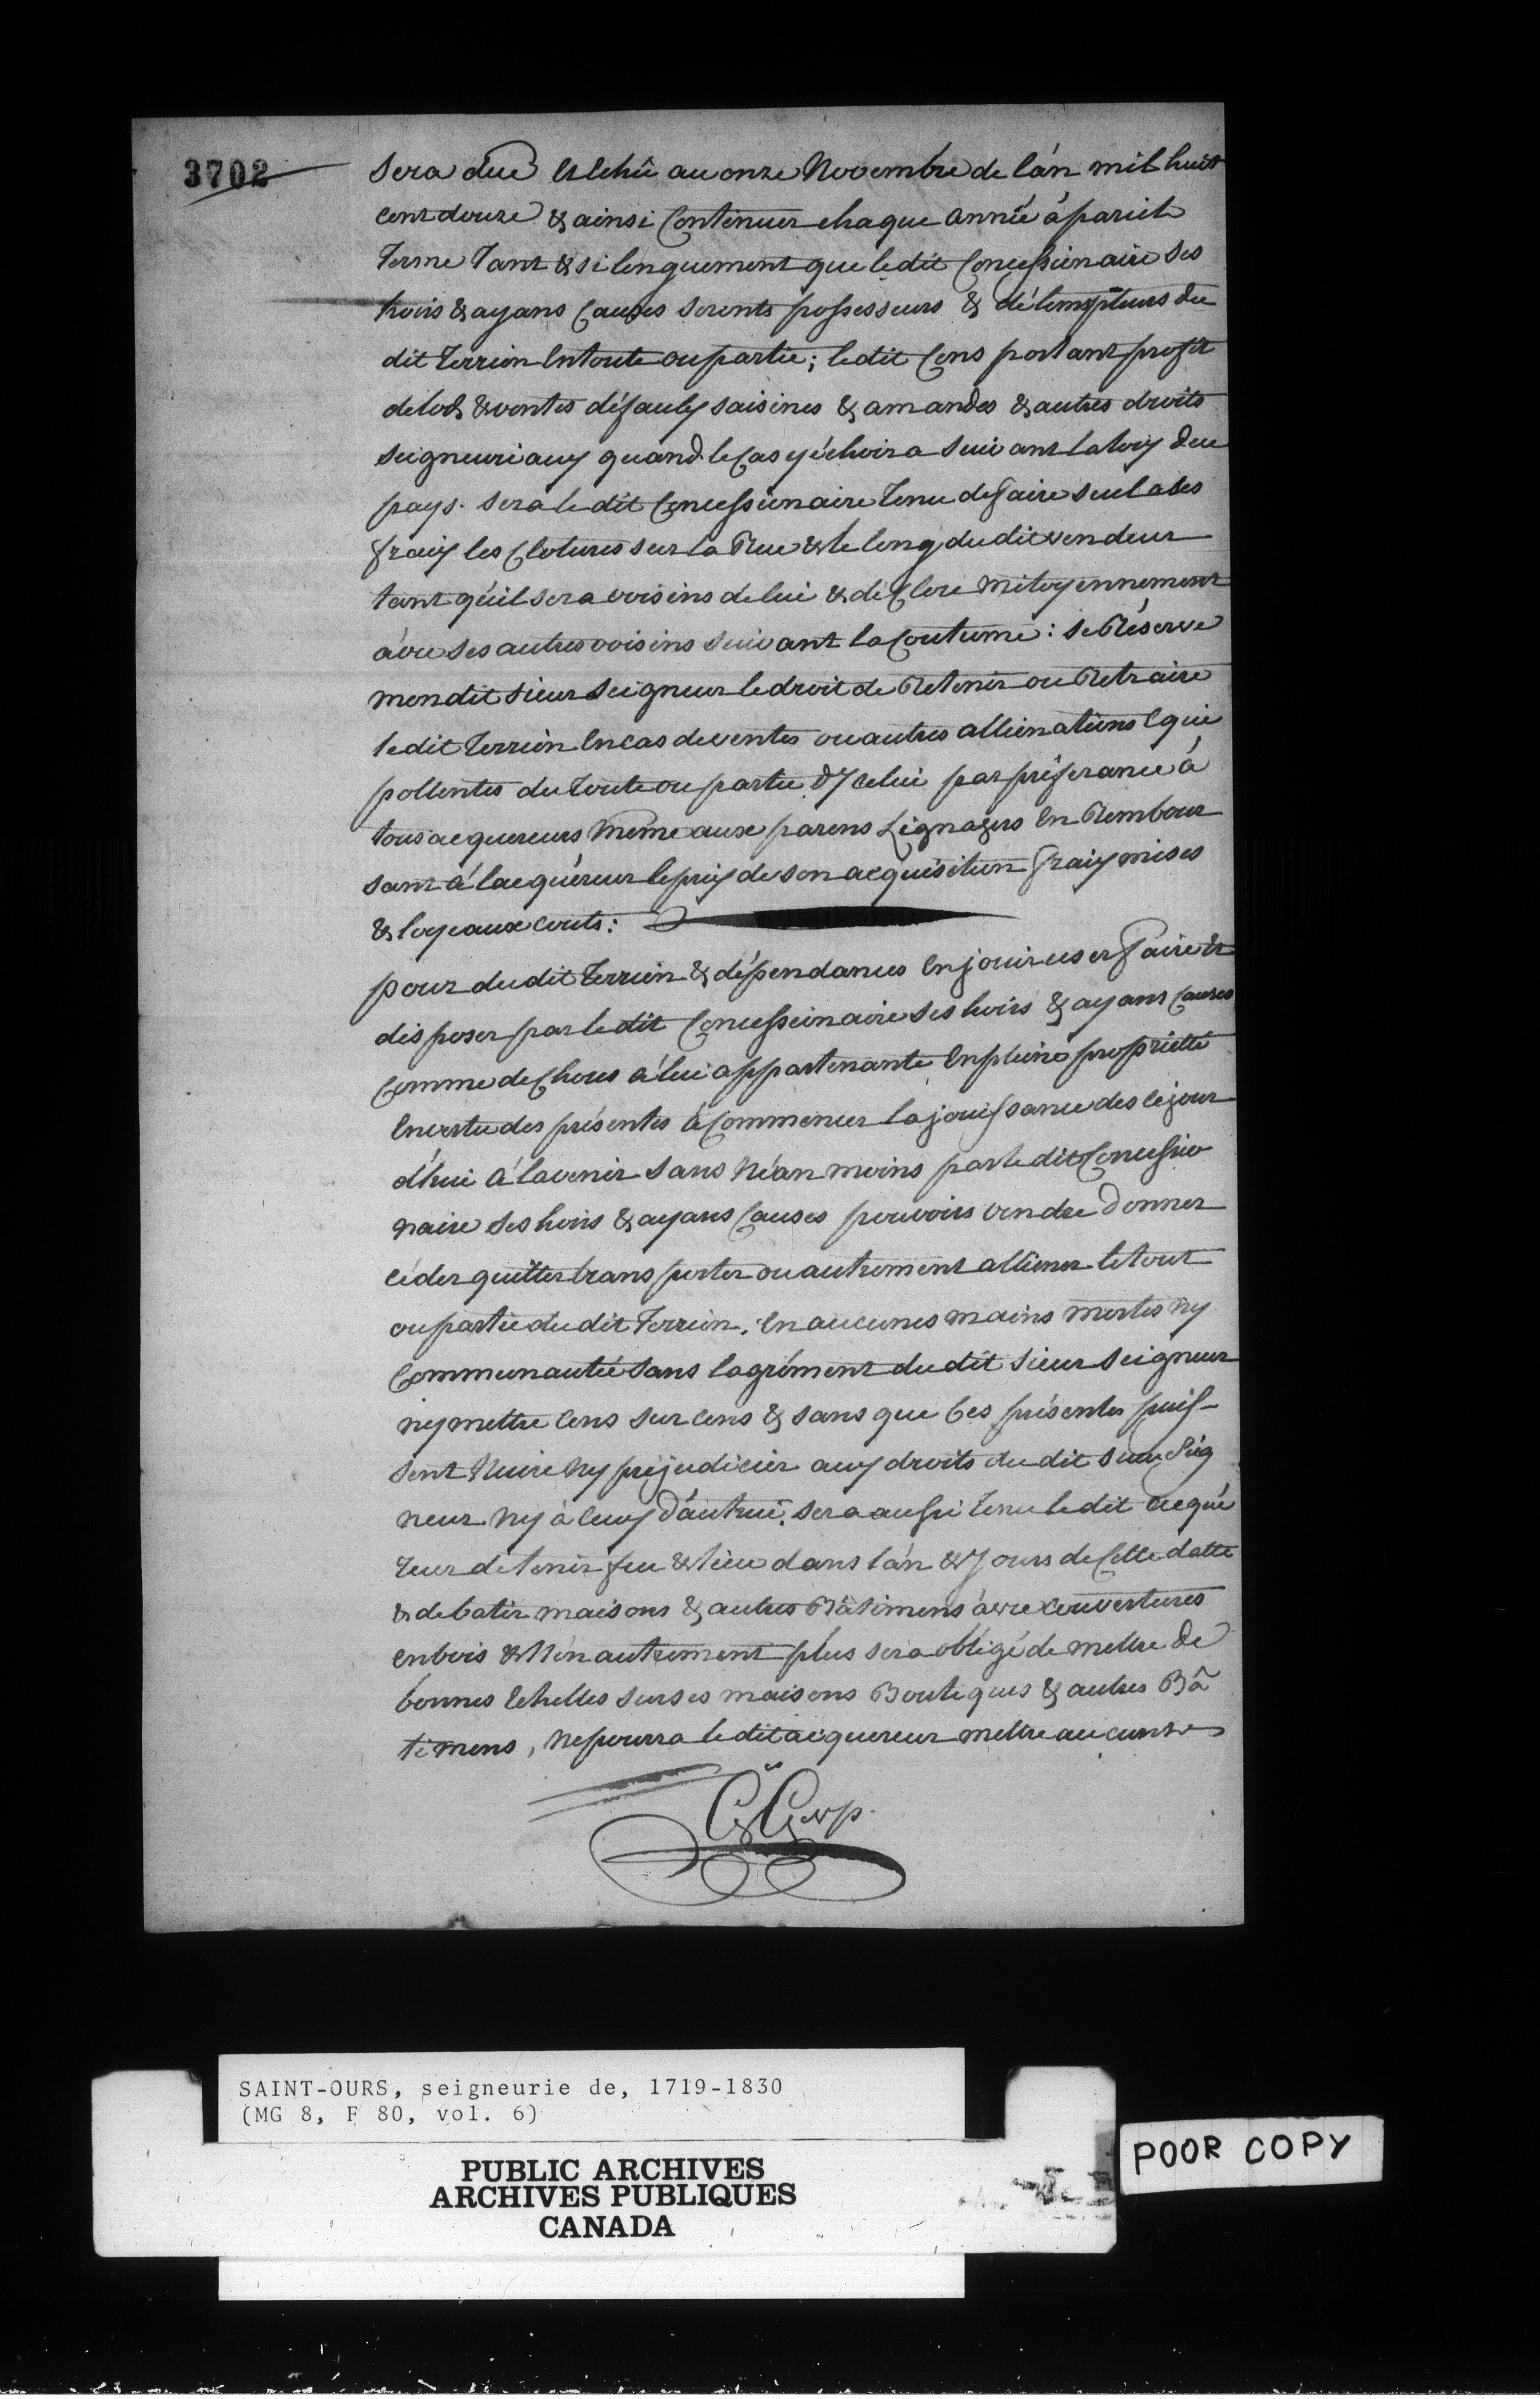 3702
Sera due Et Echû au onze Novembre de l'án mil huit
cent douze & ainsi Continuer chaque année á pareil
Terme Tant & si longuement que ledit Concessionaire Ses
hoirs & ayans Causes seronts possesseurs & détempteurs du
dit Terrien En toute ou partie; ledit Cens portant profit
de lods & ventes défauly saisines & amandes & autres droits
seigneuriauy quand le Cas y échoira suivant la loiy du
pays. sera le dit Concessionaire Tenu de faire seul a ses
fraiy les Clotures sur la Rue & le long du dit vendeur
tant qu'il sera voisins de lui & de Clore mitoyennement
ávec ses autres voisins suivant la Coutume: se Réserve
mondit sieur Seigneur le droit de Retenir ou Retraire
ledit Terrien En cas de ventes ou autres allienations Equi
pollentes du Toute ou partie d'Y celui par préferance á
tous acquereurs Même aux parens Lignagers En Rembour
sant á l'acquéreur le priy de son acquisition fraiy mises
& loyeaux couts:
pour du dit Terrien & dépendances En jouir user faire &
disposer par le dit Concessionaire ses hoirs & ayant Causes
Comme de Choses á lui appartenante En pleine propriétté
En vertu des présentes á Commencer la jouissance des ce jour
d'hui á l'avenir sans Néanmoins par le dit Concessio
naire ses hoirs & ayans Causes pouvoirs vendre Donner
céder quitter transporter ou autrement alliener le tout
ou partie du dit Terrien, En aucunes mains mortes ny
Communautée sans l'agrément du dit sieur Seigneur
ny mettre Cens sur cens & sans que Ces présentes puis-
sent Nuire Ny préjudicier auy droits du dit sieur Seig
neur Ny á Ceuy d'áutrui. sera aussi Tenu ledit acqué
reur de tenir feu & lieu dans l'án & Jours de Cette datte
& de batir maisons & autres Bâtimens ávec couvertures
en bois & N'én autrement plus sera obligé de mettre de
bonnes Echelles sur ses maisons Boutiques & autres Bâ
timens, Ne pourra le dit acquereur mettre aucuns
SAINT-OURS, seigneurie de, 1719-1830
(MG 8, F 80, vol. 6)
PUBLIC ARCHIVES
ARCHIVES PUBLIQUES
CANADA
POOR COPY